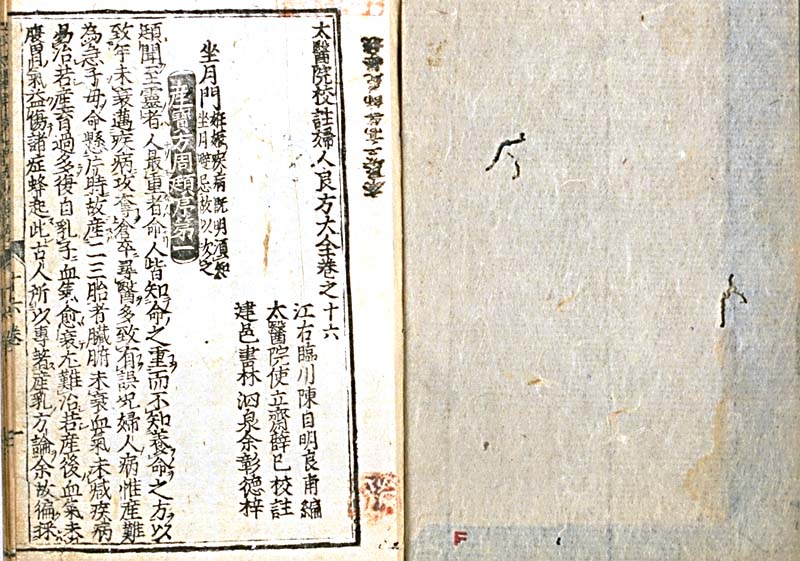 太醫院校註婦人良方大全卷之十六
江右臨川陳自明良甫編
太醫院使立齋薛已校註
建邑書林泗泉余彰德梓
坐月門
妊娠疾病既明須知
坐月避忌故以次之
產寶方周頲序第一
頲聞至靈者人最重者命人皆知命之重而不知養命之方以
致年未衰邁疾病攻奪倉卒尋醫多致有誤况婦人病惟產難
為急子母命懸片時故產二三胎者臟腑未衰血氣未减疾病
易治若產育過多復自乳子血氣愈衰尤難治若產後血氣未
復胃氣益傷諸症蜂起此古人所以專著產乳方論余故徧採
十六卷
一
F